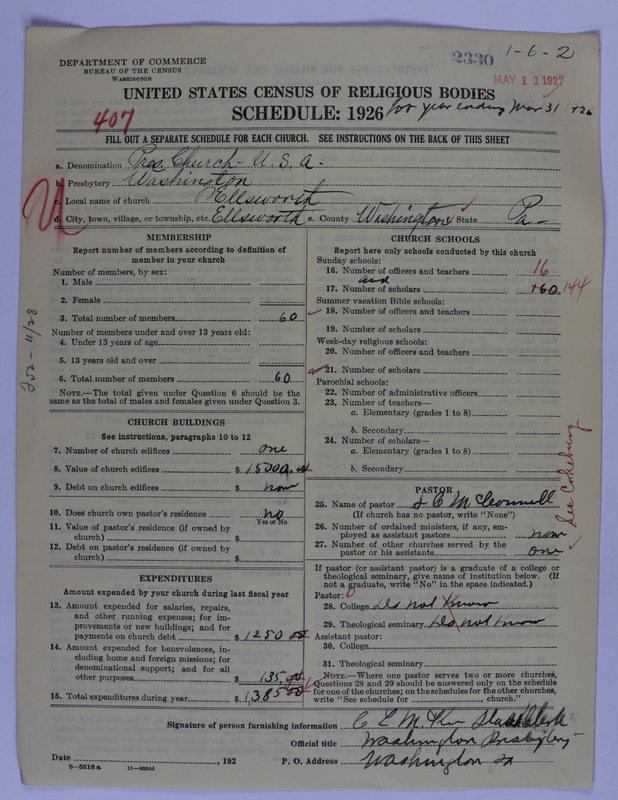 DEPARTMENT OF COMMERCE
BUREAU OF THE CENSUS
WASHINGTON
2330
1-6-2
MAY 11 1927
UNITED STATES CENSUS OF RELIGIOUS BODIES
SCHEDULE: 1926 for year ending Mar 31 1926
407
FILL OUT A SEPARATE SCHEDULE FOR EACH CHURCH. SEE INSTRUCTIONS ON THE BACK OF THIS SHEET
a. Denomination Pres. Church - U.S.A.
b. Presbytery Washington
c. Local name of church Ellsworth
d. City, town, village, or township, etc. Ellsworth e. County Washington State Pa-
MEMBERSHIP
Report number of members according to definition of
member in your church
Number of members, by sex:
1. Male
2. Female
3. Total number of members 60
Number of members under and over 13 years old:
4. Under 13 years of age
5. 13 years old and over
6. Total number of members 60
NOTE.—The total given under Question 6 should be
the same as the total of males and females given under Question 3.
CHURCH BUILDINGS
See instructions, paragraphs 10 to 12
7. Number of church edifices one
8. Value of church edifices $ 15000.00
9. Debt on church edifices $ none
10. Does church own pastor's residence no
Yes or No
11. Value of pastor's residence (if owned by
church) $
12. Debt on pastor's residence (if owned by
church) $
EXPENDITURES
Amount expended by your church during last fiscal year
13. Amount expended for salaries, repairs,
and other running expenses; for im-
provements or new buildings; and for
payments on church debt $ 1250 00
14. Amount expended for benevolences, in-
cluding home and foreign missions; for
denominational support; and for all
other purposes $ 135.00
15. Total expenditures during year $ 1,385 00
CHURCH SCHOOLS
Report here only schools conducted by this church
Sunday schools:
16. Number of officers and teachers 16
and
17. Number of scholars 160 144
Summer vacation Bible schools:
18. Number of officers and teachers
19. Number of scholars
Week-day religious schools:
20. Number of officers and teachers
21. Number of scholars
Parochial schools:
22. Number of administrative officers
23. Number of teachers—
a. Elementary (grades 1 to 8)
b. Secondary
24. Number of scholars—
a. Elementary (grades 1 to 8)
b. Secondary
See Cokeburg
PASTOR
25. Name of pastor
(If church has no pastor, write "None")
26. Number of ordained ministers, if any, em-
ployed as assistant pastors none
27. Number of other churches served by the
pastor or his assistants one
If pastor (or assistant pastor) is a graduate of a college or
theological seminary, give name of institution below. (If
not a graduate, write "No" in the space indicated.)
Pastor:
28. College do not know
29. Theological seminary do not know
Assistant pastor:
30. College
31. Theological seminary
NOTE.—Where one pastor serves two or more churches,
Questions 28 and 29 should be answered only on the schedule
for one of the churches; on the schedules for the other churches,
write "See schedule for church."
Signature of person furnishing information Stated Clerk
Official title Washington Presbytery
Date , 192 P. O. Address Washington Pa
8-5518 a 11-92544